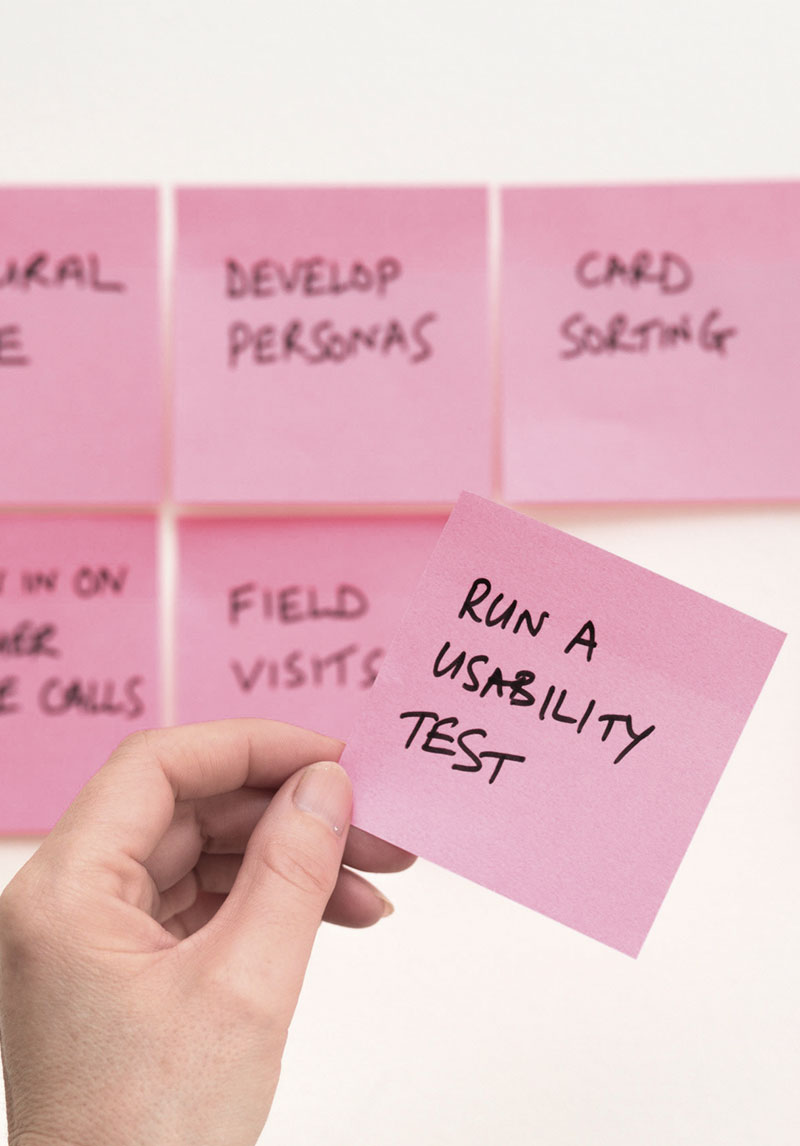 DEVELOP
PERSONAS
CARD
SORTING
IN ON
CALLS
FIELD
VISITS
RUN A
USABILITY
TEST